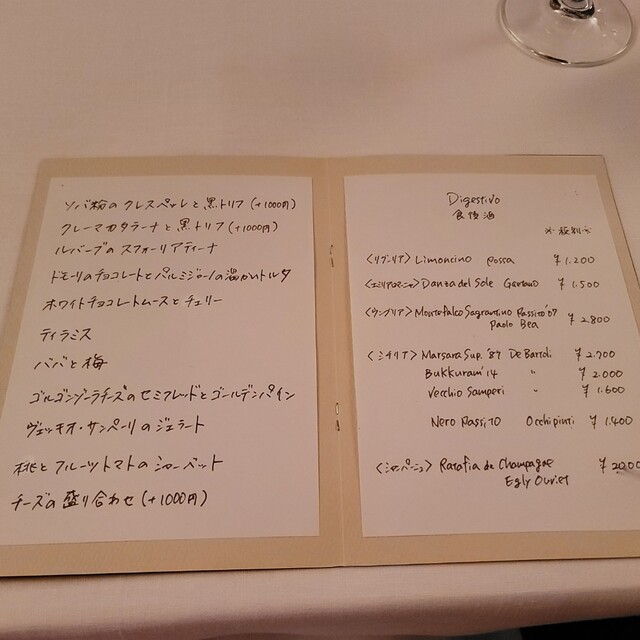 ソバ粉のクレスペッレと黒トリフ(+1000円)
クレーマカタラーナと黒トリフ(+1000円)
ルバーブのスフォーリアティーナ
ドモーリのチョコレートとパルミジャーノの温かいトルタ
ホワイトチョコレートムースとチェリー
ティラミス
ババと梅
ゴルゴンゾーラチーズのセミフレッドとゴールデンパイン
ヴェッキオ・サンペーリのジェラート
桃とフルーツトマトのシャーベット
チーズの盛り合わせ(+1000円)
Digestivo
食後酒
※税別※
〈リグーリア〉 Limoncino Rossa ¥1.200
〈エミリアロマーニャ〉 Danza del Sole Gaetano ¥1.500
〈ウンブリア〉 Montefalco Sagrantino Passito'07
Paolo Bea ¥2.800
〈シチリア〉 Marsara Sup. '87 De Bartoli ¥2.700
Bukkuram '14 〃 ¥2.000
Vecchio Samperi 〃 ¥1.600
Nero Passito Occhipinti ¥1.400
〈シャンパーニュ〉 Ratafia de Champagne ¥2000
Egly Ouriet